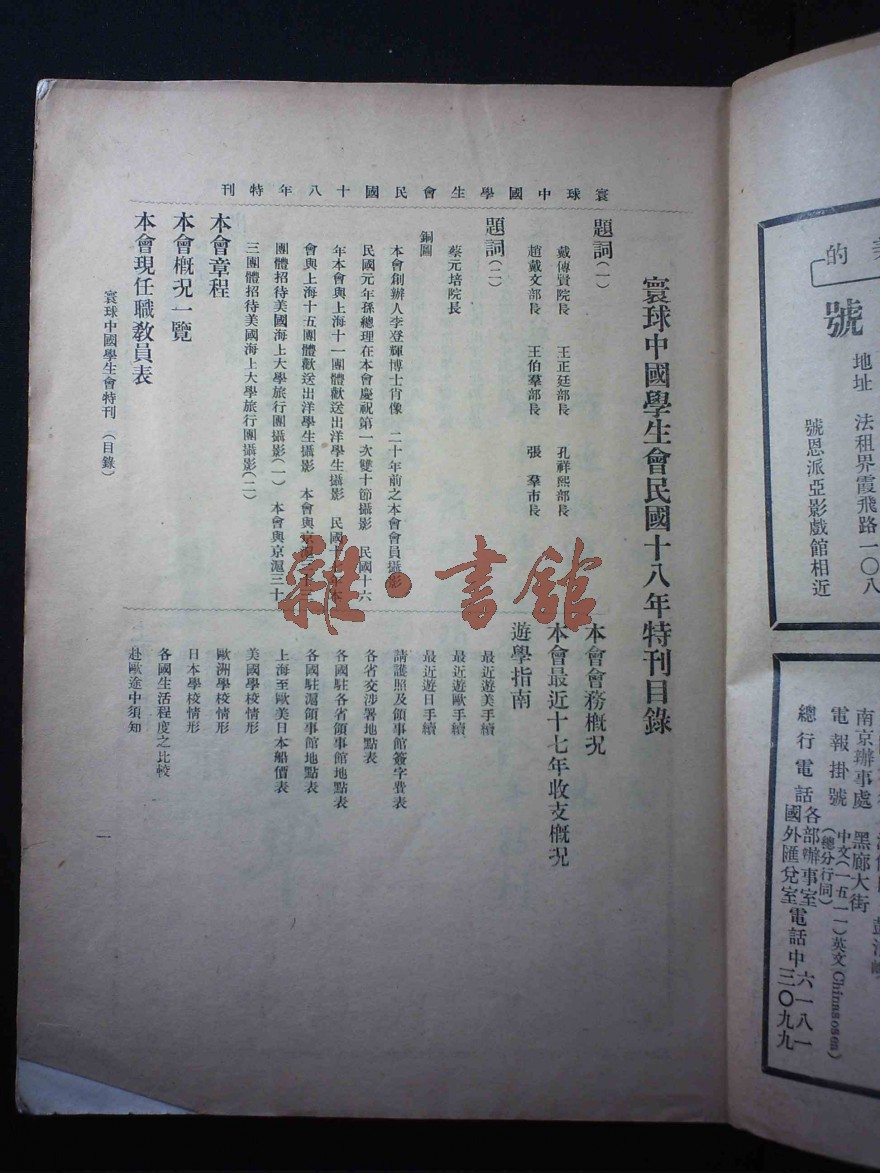 寰球中國學生會民國十八年特刊
寰球中國學生會民國十八年特刊目錄
題詞(一)
戴傳賢院長 王正廷部長 孔祥熙部長
趙戴文部長 王伯羣部長 張羣市長
題詞(二)
蔡元培院長
銅圖
本會創辦人李登輝博士肖像 二十年前之本會會員攝影
民國元年孫總理在本會慶祝第一次雙十節攝影 民國十六
年本會與上海十一團體歡送出洋學生攝影 民國十
會與上海十五團體歡送出洋學生攝影 本會與京滬
團體招待美國海上大學旅行團攝影(一) 本會與京滬三十
三團體招待美國海上大學旅行團攝影(二)
本會章程
本會概况一覽
本會現任職教員表
本會會務概况
本會最近十七年收支概况
遊學指南
最近遊美手續
最近遊歐手續
最近遊日手續
請護照及領事館簽字費表
各省交涉署地點表
各國駐各省領事館地點表
各國駐滬領事館地點表
上海至歐美日本船價表
美國學校情形
歐洲學校情形
日本學校情形
各國生活程度之比較
赴歐途中須知
寰球中國學生會特刊 (目錄)
一
雜·書館
的
號
地址 法租界霞飛路一〇八
號恩派亞影戲館相近
南京辦事處 黑廊大街
電報掛號 中文(一五一一)英文(Chinnosen)
(總分行同)
總行電話各部辦事室
國外匯兌室電話中六一八一
三〇九九